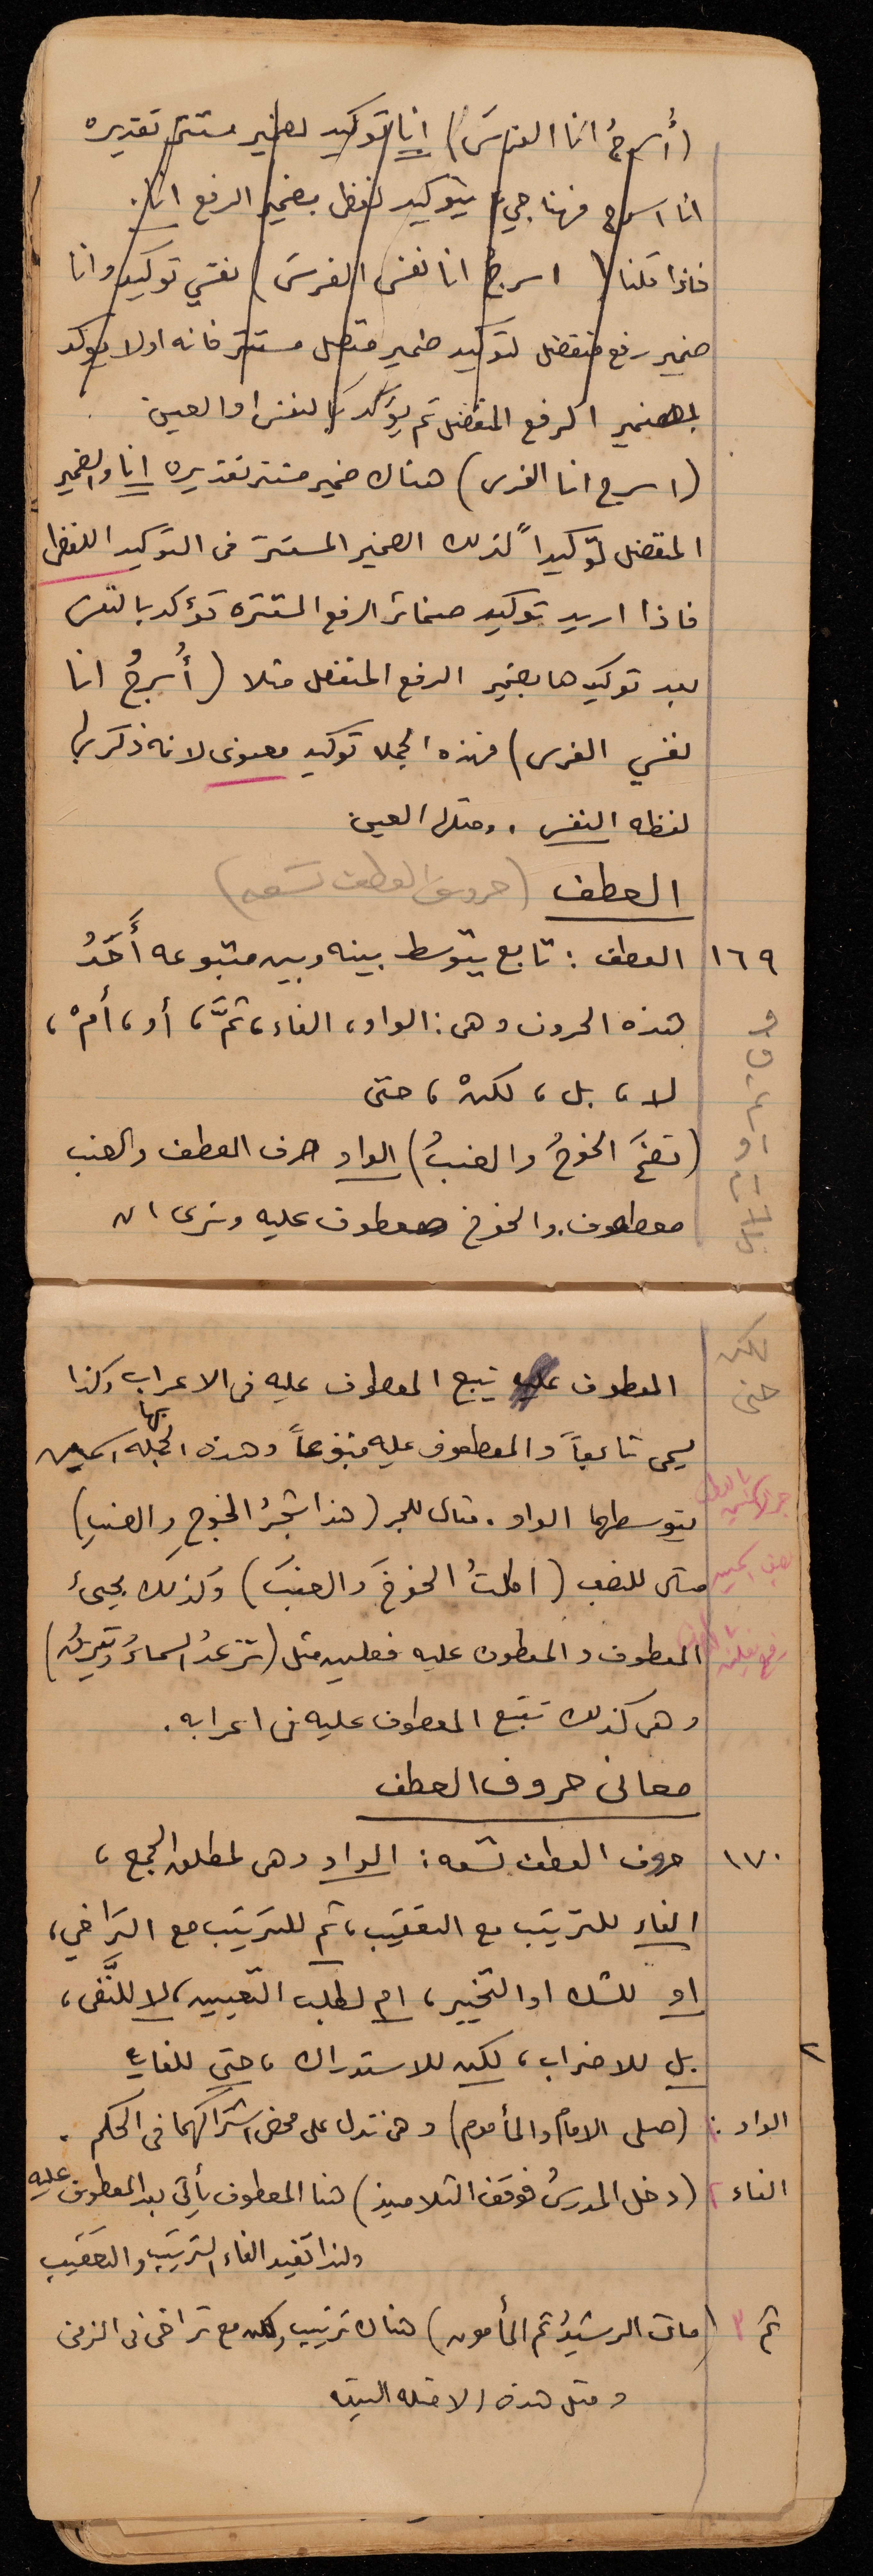 (أُسرجُ انا الفرسَ) انا توكيد لضمير مستتر تقديره
انا اسرج فهنا جيء بتوكيد لفظي بضمير الرفع انا.
فاذا قلنا (اسرجُ انا نفسي الفرسَ) نفسي توكيد وانا
ضمير رفع منفصل لتوكيد ضمير متصل مستتر فانه اولا يؤكد
بضمير الرفع المنفصل ثم يؤكد بالنفس او العين.
(اسرج انا الفرس) هناك ضمير مستتر تقديره انا والضمير
المنفصل توكيداً لذلك الضمير المستتر في التوكيد اللفظي
فاذا اريد توكيد ضمائر الرفع المستتره تؤكد بالنفس
بعد توكيدها بضمير الرفع المنفصل مثلا (أُسرجُ انا
نفسي الفرس) فهذه الجمله توكيد معنوي لانه ذكر بها
لفظه النفس. ومثلها العين.
العطف (حروف العطف تسعه)
١٦٩ العطف: تابع يتوسط بينه وبين متبوعه أَحَدُ
هذه الحروف وهي: الواو، الفاء، ثمَّ، أو، أمْ،
لا، بل، لكنْ، حتى
(نضجَ الخوخُ والعنبُ) الواو حرف العطف والعنب
معطوف. والخوخ معطوف عليه ونرى ان
لكن
حتى
المعطوف يتبع المعطوف عليه في الاعراب وكذا
يسمى تابعاً والمعطوف عليه متبوعاً وهذه الجمله بها اسمين
يتوسطهما الواو. مثال للجر (هذا شجرُ الخوخِ والعنبِ)
مثال للنصب (اكلتُ الخوخَ والعنبَ) وكذلك يجيئ
المعطوف والمعطوف عليه فعلين مثل (ترعدُ السماءُ وتبرقُ)
وهي كذلك تتبع المعطوف عليه في اعرابه.
معاني حروف العطف
١٧٠ حروف العطف تسعه: الواو وهي لمطلق الجمع،
الفاء للترتيب مع التعقيب، ثم للترتيب مع التراخي،
او للشك او التخيير، ام لطلب التعيين، لا للنَّفي،
بل للاضراب، لكن للاستدراك، حتى للغايه
الواو ١ (صلى الامام والمأموم) وهي تدل على محض اشتراكهما في الحكم.
الفاء ٢ (دخل المدرسُ فوقف التلاميذ) هنا المعطوف يأتي بعد المعطوف عليه
ولذا تفيد الفاء الترتيب والتعقيب
ثم ٣ (مات الرشيدُ ثم المأمون) هناك ترتيب ولكن مع تراخي في الزمن
ومثل هذه الامثله